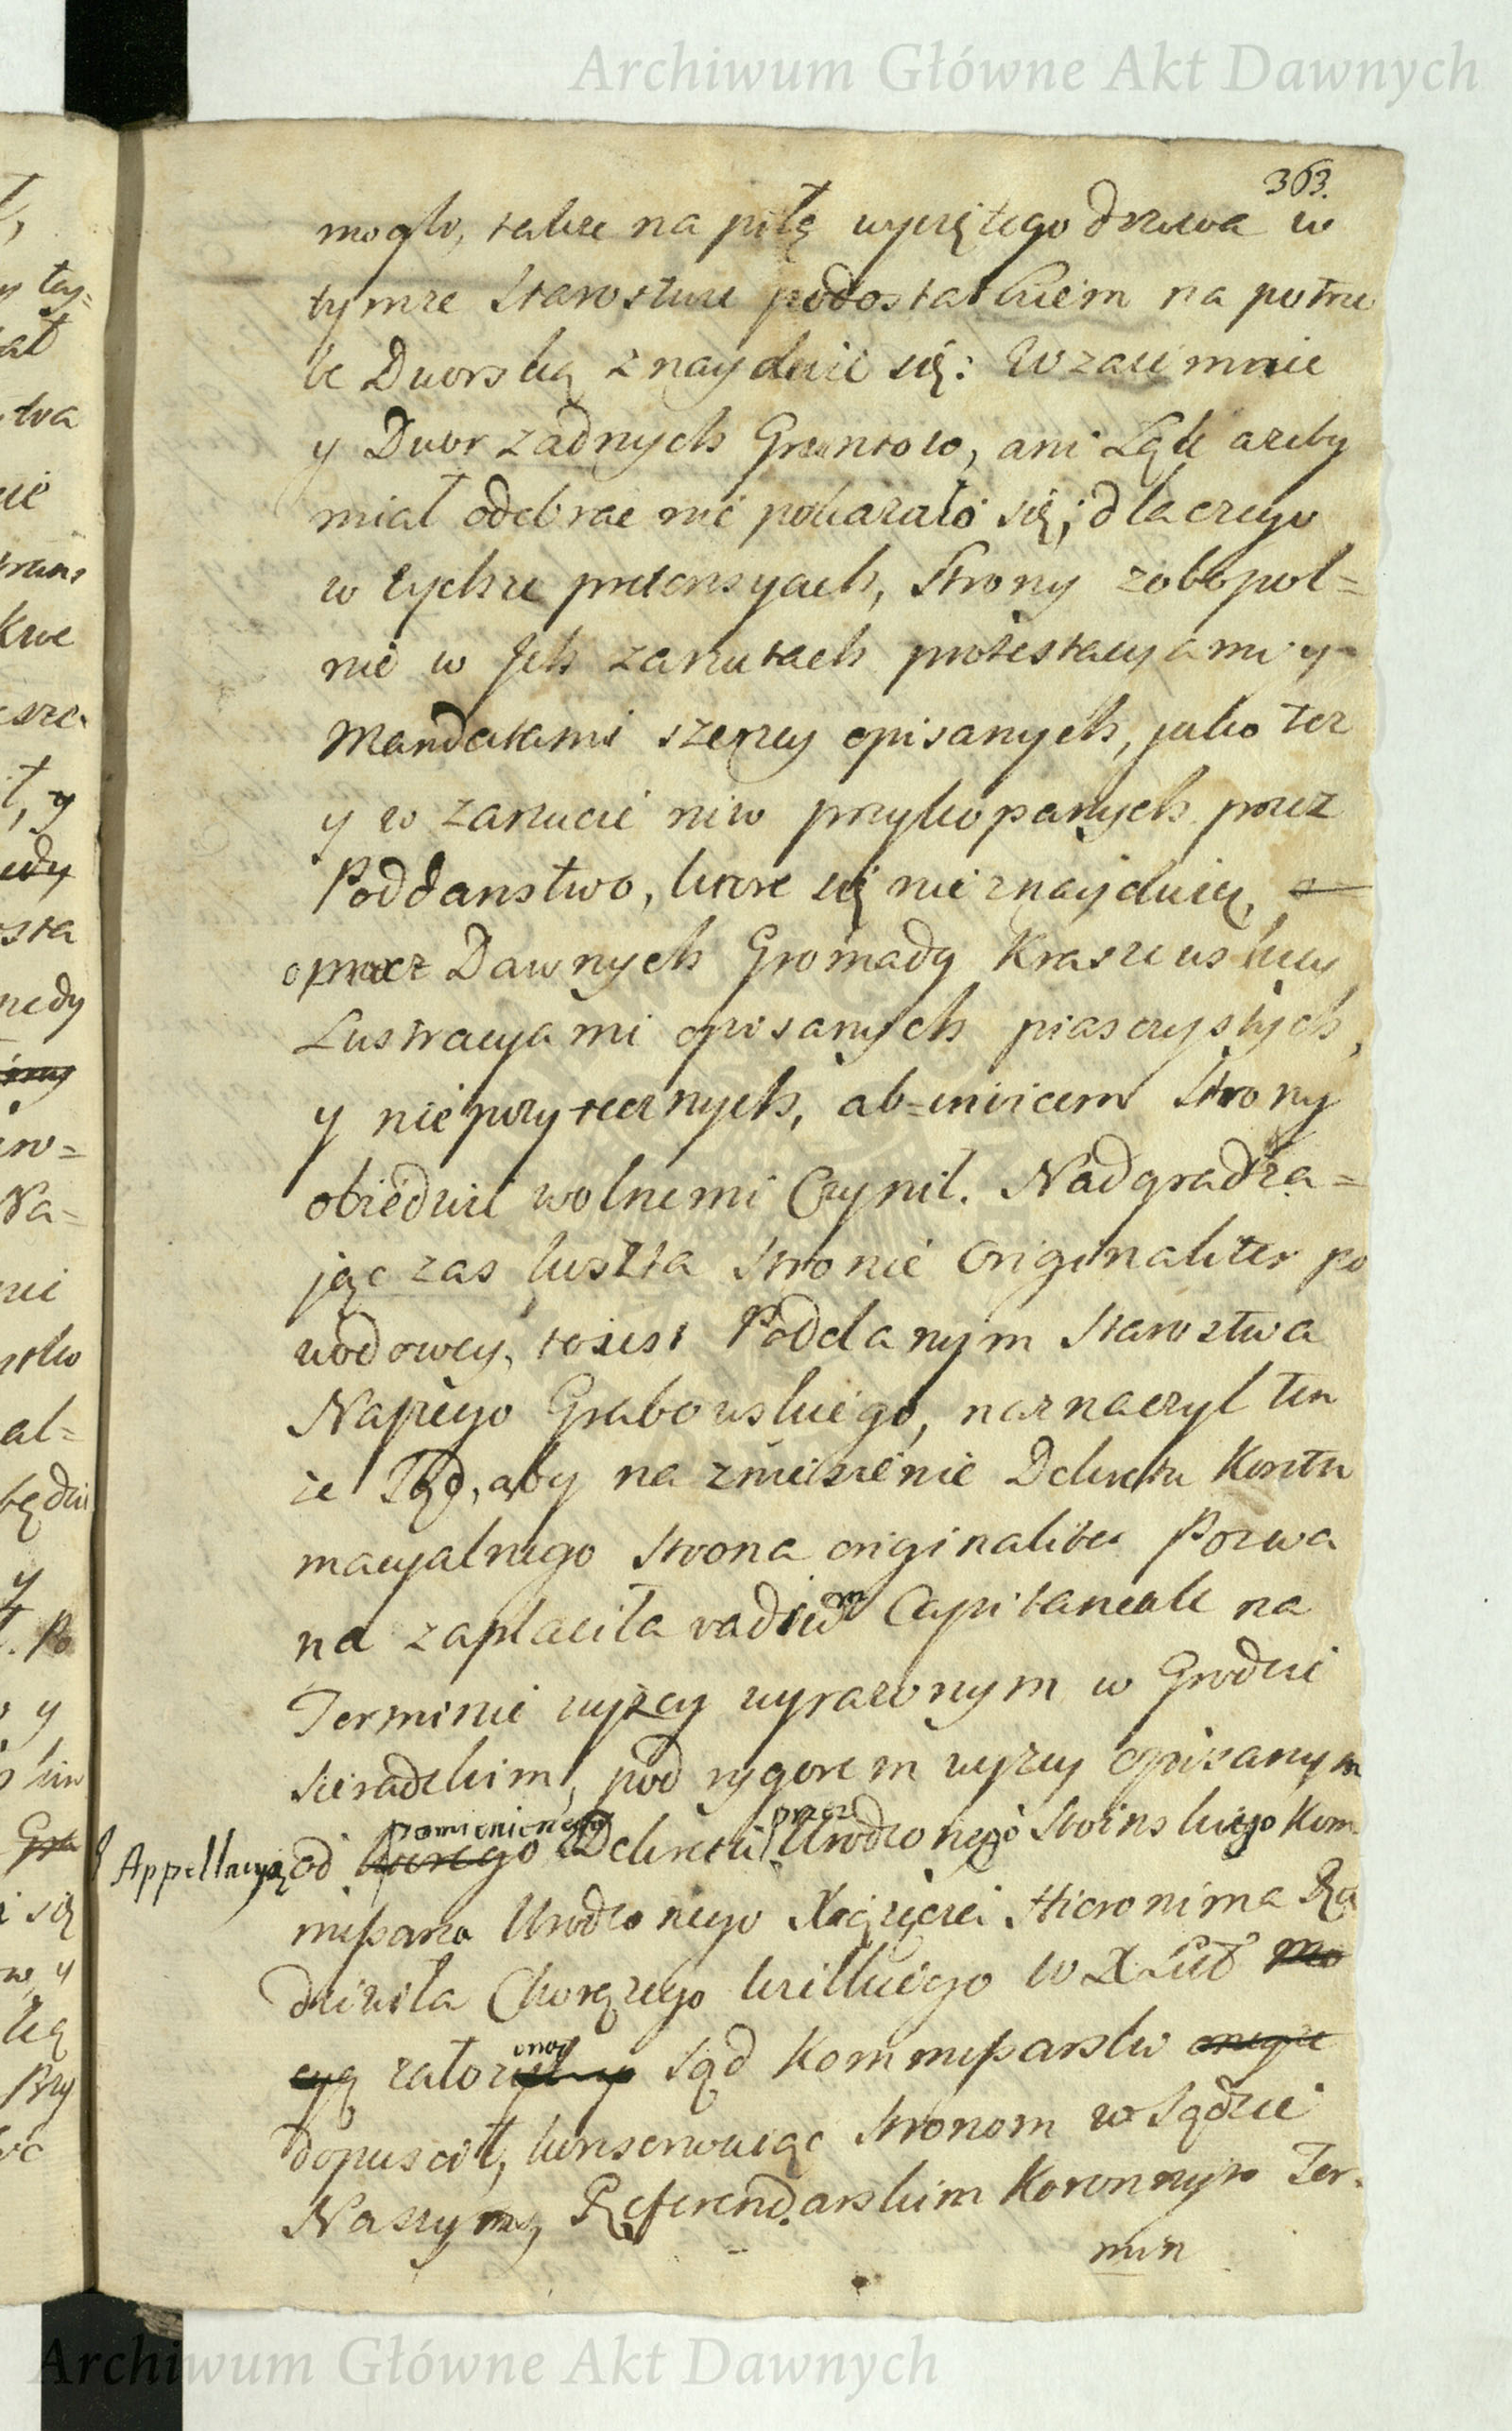 Archiwum Główne Akt Dawnych
363.
mogło, także na piłę wyciętego drzewa w
tymże Starostwie podostatkiem na potrze
be Dworską znayduie się: Wzaiemnie
y Dwor żadnych Gruntow, ani Łąk ażeby
miał odebrac nie pokazało się; dla czego
w tychże pretensyach, Strony zobopol=
nie w Jch zarzutach protestacyami y
Mandatami szerzey opisanych, jako też
y w zarzucie niw przykopanych przez
Poddanstwo, ktore się nie znayduią,
oprocz Dawnych Gromady Kraszewskiey
Lustracyami opisanych piasczystych,
y niepożytecznych, ab=invicem Strony
obiedwie wolnemi Czynił. Nadgradza=
jąc zas koszta Stronie Originaliter po
wodowey, to iest Poddanym Starostwa
Napiego Grabowskiego, naznaczył ten
że Sąd, aby na zniesienie Dekretu Kontu
macyalnego Strona originaliter Pozwa
na zapłaciła vadium Capitaneale na
Terminie wyżey wyrażonym w Grodzie
Sieradzkim, pod rygorem wyżey opisanym
pomienionego przez
Appellacyą od ktorego Dekretu Urodzonego Stoinskiego Kom
missarza Urodzonego Xiążęcia Hieronima Ra
dziwiła Chorążego Wielkiego W X Litt mo
cyą założył onaż Sąd Kommissarski onegoż
dopuscił, konserwuiąc Stronom w Sądzie
Naszym, Referendarskim Koronnym Ter=
min
ał
Na=
al=
będzie
y
Po
y
się
Archiwum Główne Akt Dawnych